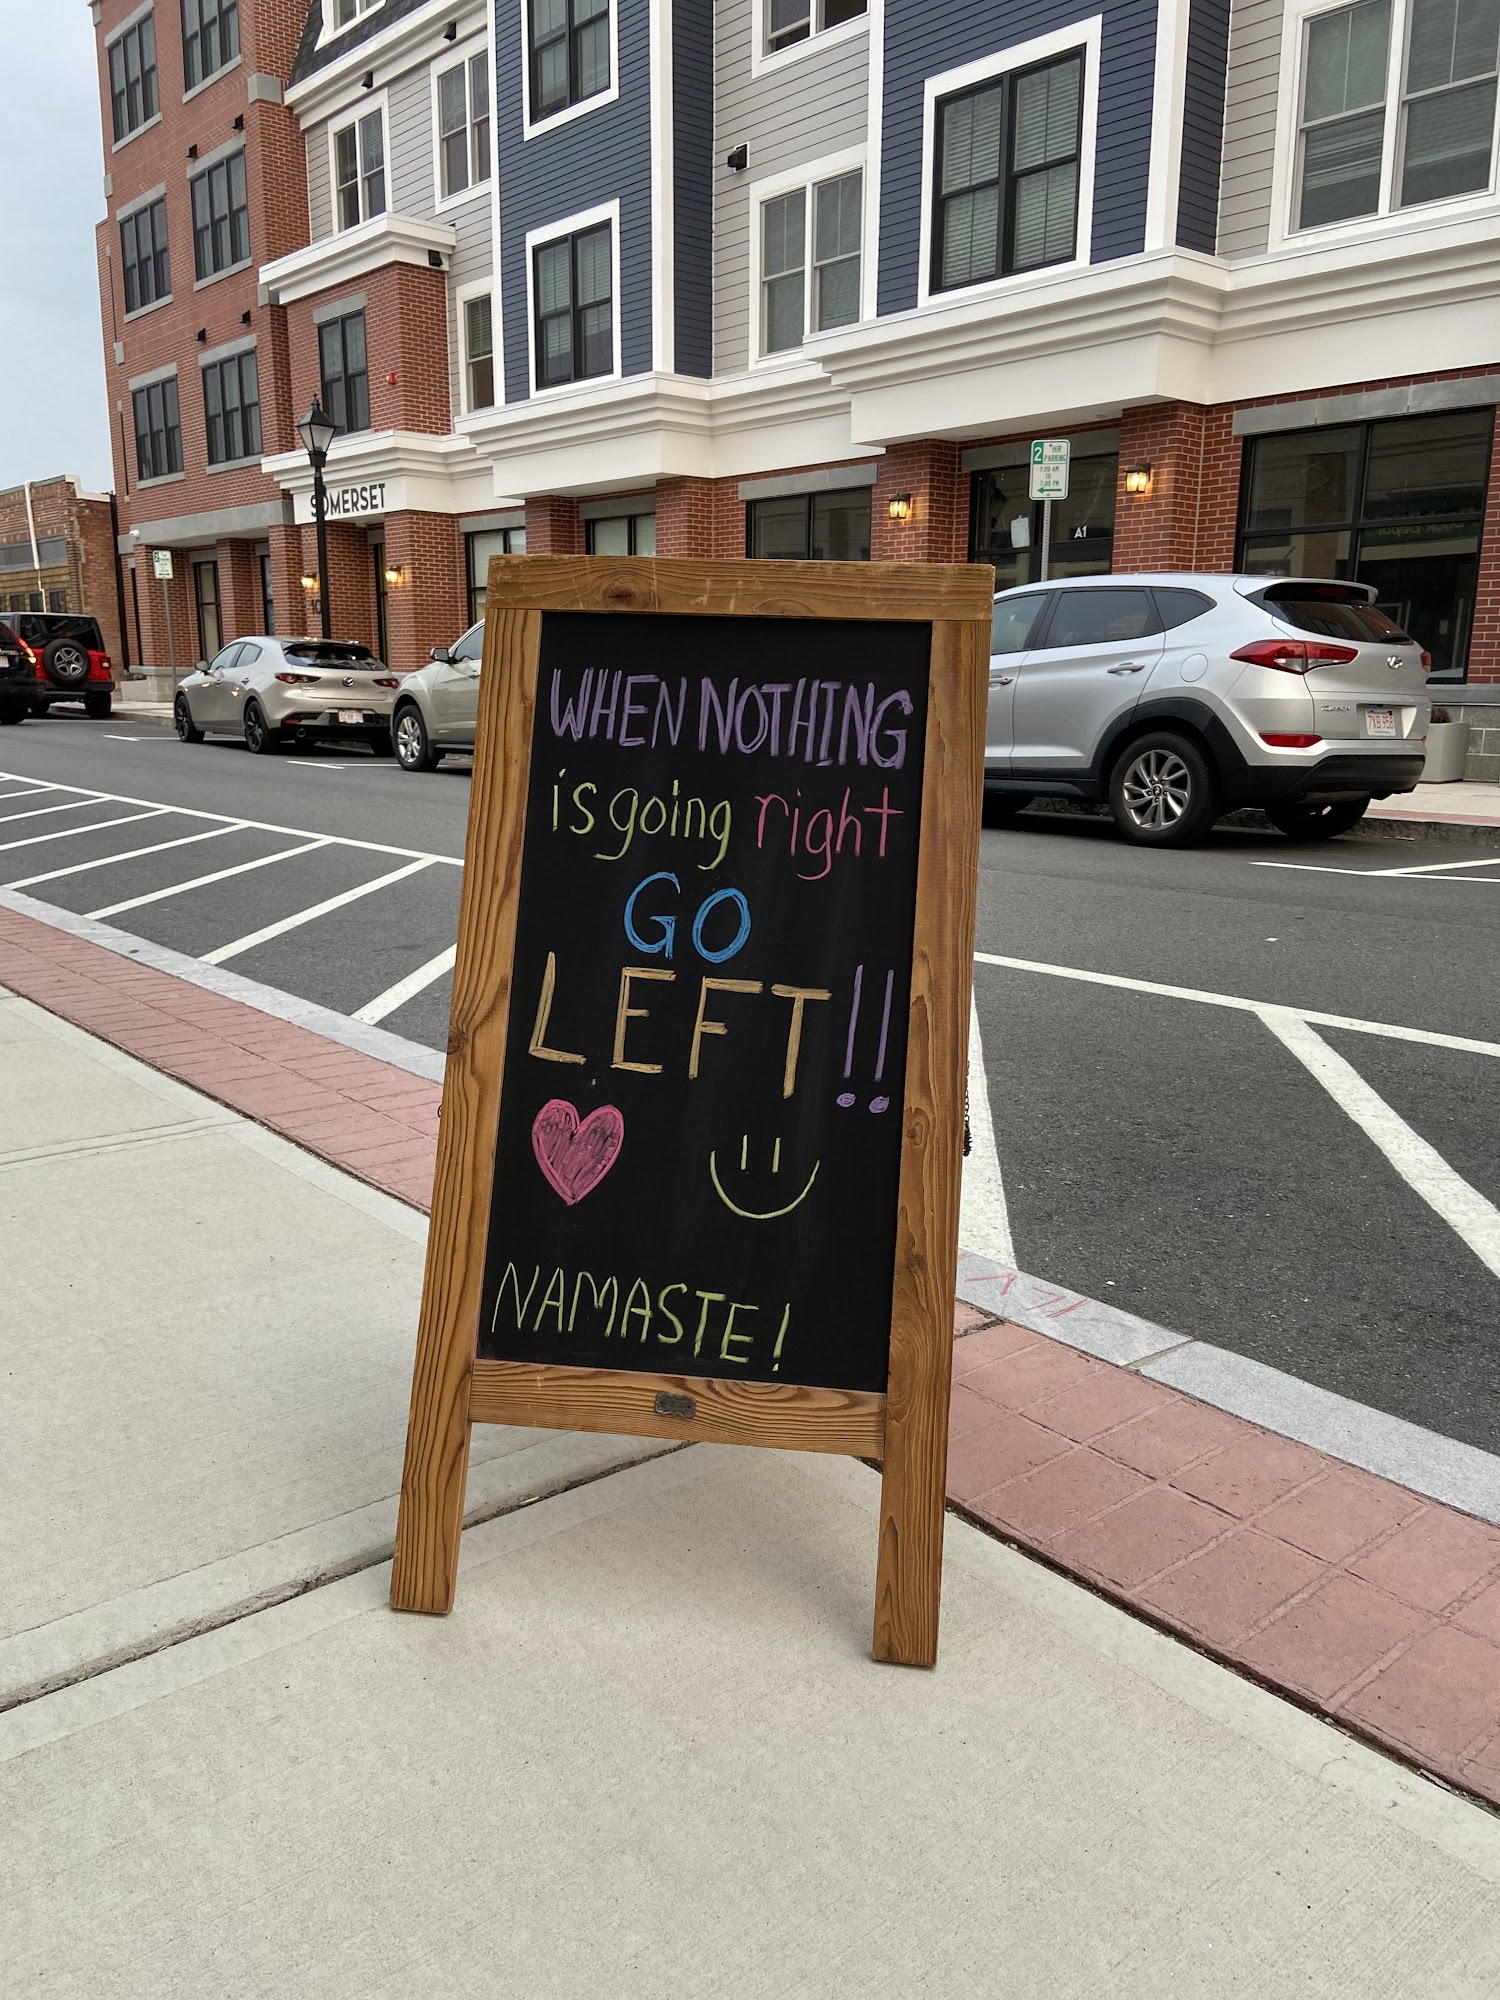 SOMERSET
10
2 HR
PARKING
7:00 AM
TO
7:00 PM
A1
TUCSON
WHEN NOTHING
is going right
GO
LEFT!!
NAMASTE!